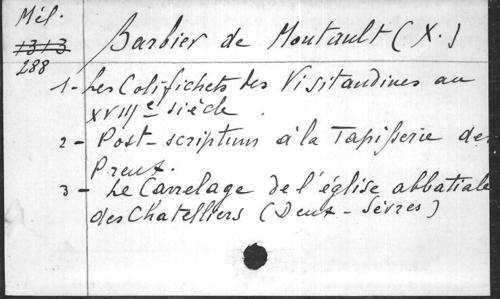 Mél.
1313
288
Barbier de Montault (X.)
1 - Les Colifichets des Visitandines au
XVIIIe siècle.
2 - Post-scriptum à la Tapisserie des
Preux.
3 - Le Carrelage de l'église abbatiale
des Chatelliers (Deux-Sèvres)